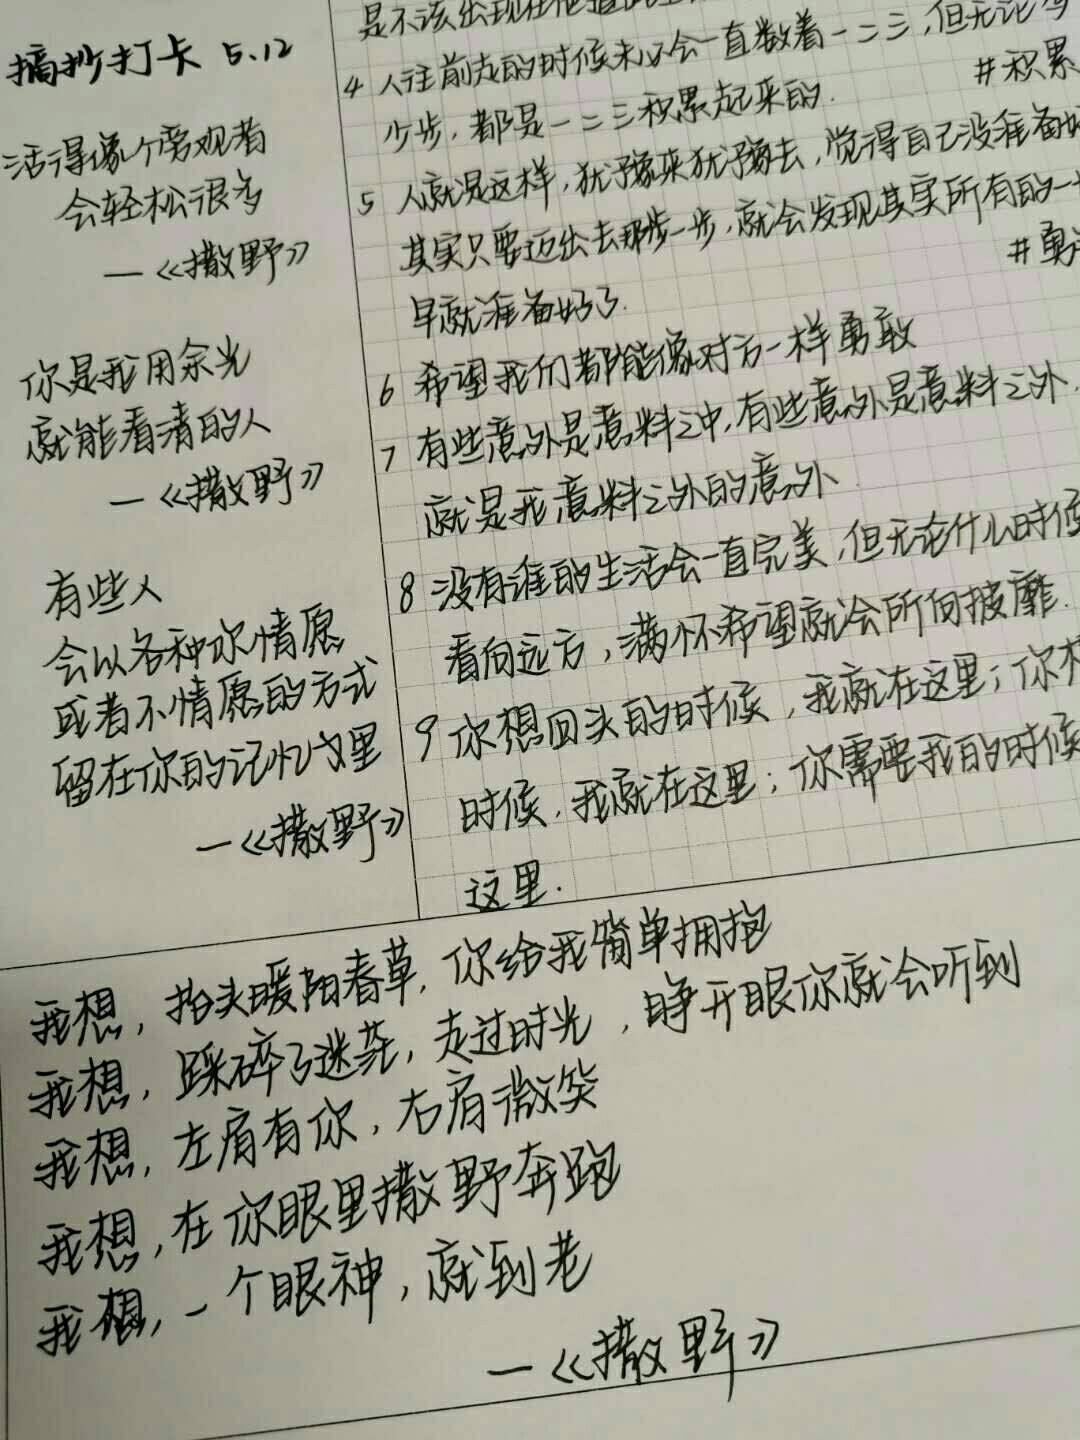 摘抄打卡 5.12
活得像个旁观者
会轻松很多
—《撒野》
你是我用余光
就能看清的人
—《撒野》
有些人
会以各种你情愿
或者不情愿的方式
留在你的记忆里
—《撒野》
是不该出现在他
4 人往前走的时候未必会一直数着一二三,但无论多
少步,都是一二三积累起来的.
#积累
5 人就是这样,犹豫来犹豫去,觉得自己没准备好
其实只要迈出去那步一步,就会发现其实所有的一
#勇
早就准备好了.
6 希望我们都能像对方一样勇敢
7 有些意外是意料之中,有些意外是意料之外,
就是我意料之外的意外.
8 没有谁的生活会一直完美,但无论什么时候
看向远方,满怀希望就会所向披靡.
9 你想回头的时候,我就在这里;你不
时候,我就在这里;你需要我的时候
这里.
我想,抬头暖阳春草,你给我简单拥抱
我想,踩碎了迷茫,走过时光,睁开眼你就会听到
我想,左肩有你,右肩微笑
我想,在你眼里撒野奔跑
我想,一个眼神,就到老
—《撒野》